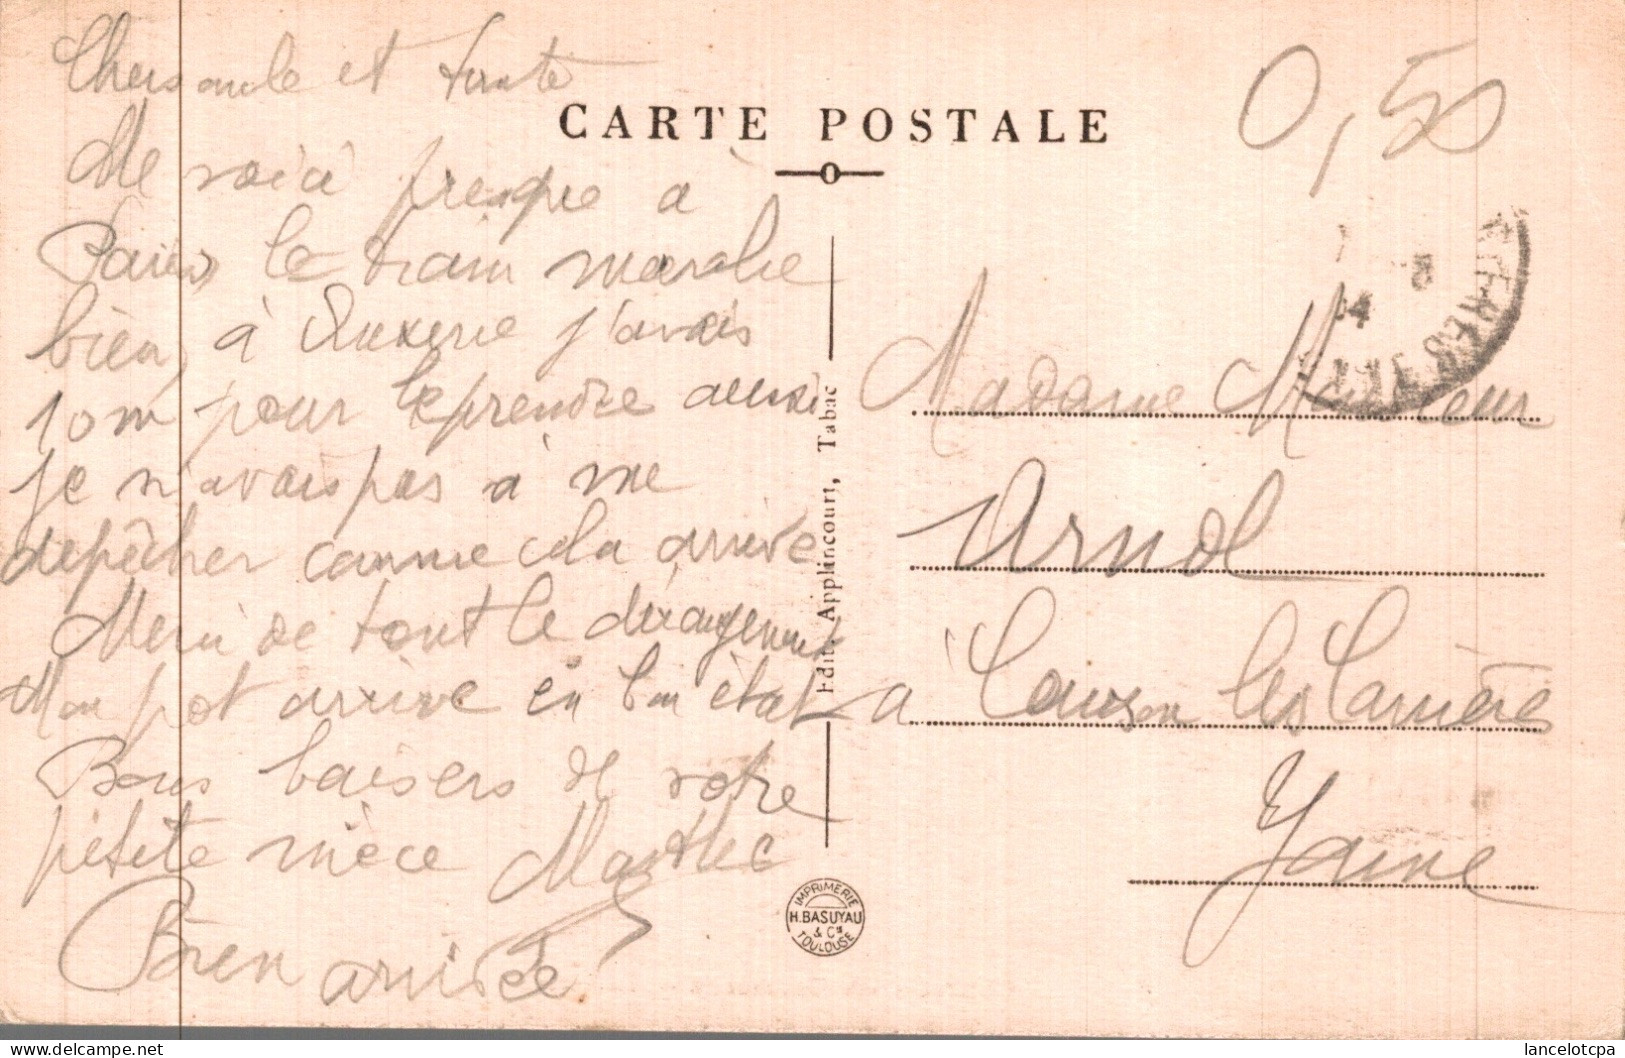 Chers oncle et tante
Me voici presque à
Paris, le train marche
bien, à Auxerre j'avais
10 m pour le prendre aussi
je n'avais pas à me
depêcher comme cela arrive
Merci de tout le dérangement
Mon pot arrive en bon état
Bons baisers de votre
petite nièce Marthe
Bien arrivée
CARTE POSTALE
0,50
Edit. Applincourt, Tabac
IMPRIMERIE
H. BASUYAU
& Cie
TOULOUSE
04
8
Madame
Arnol
à Courson les Carrières
Yonne
lancelotcpa